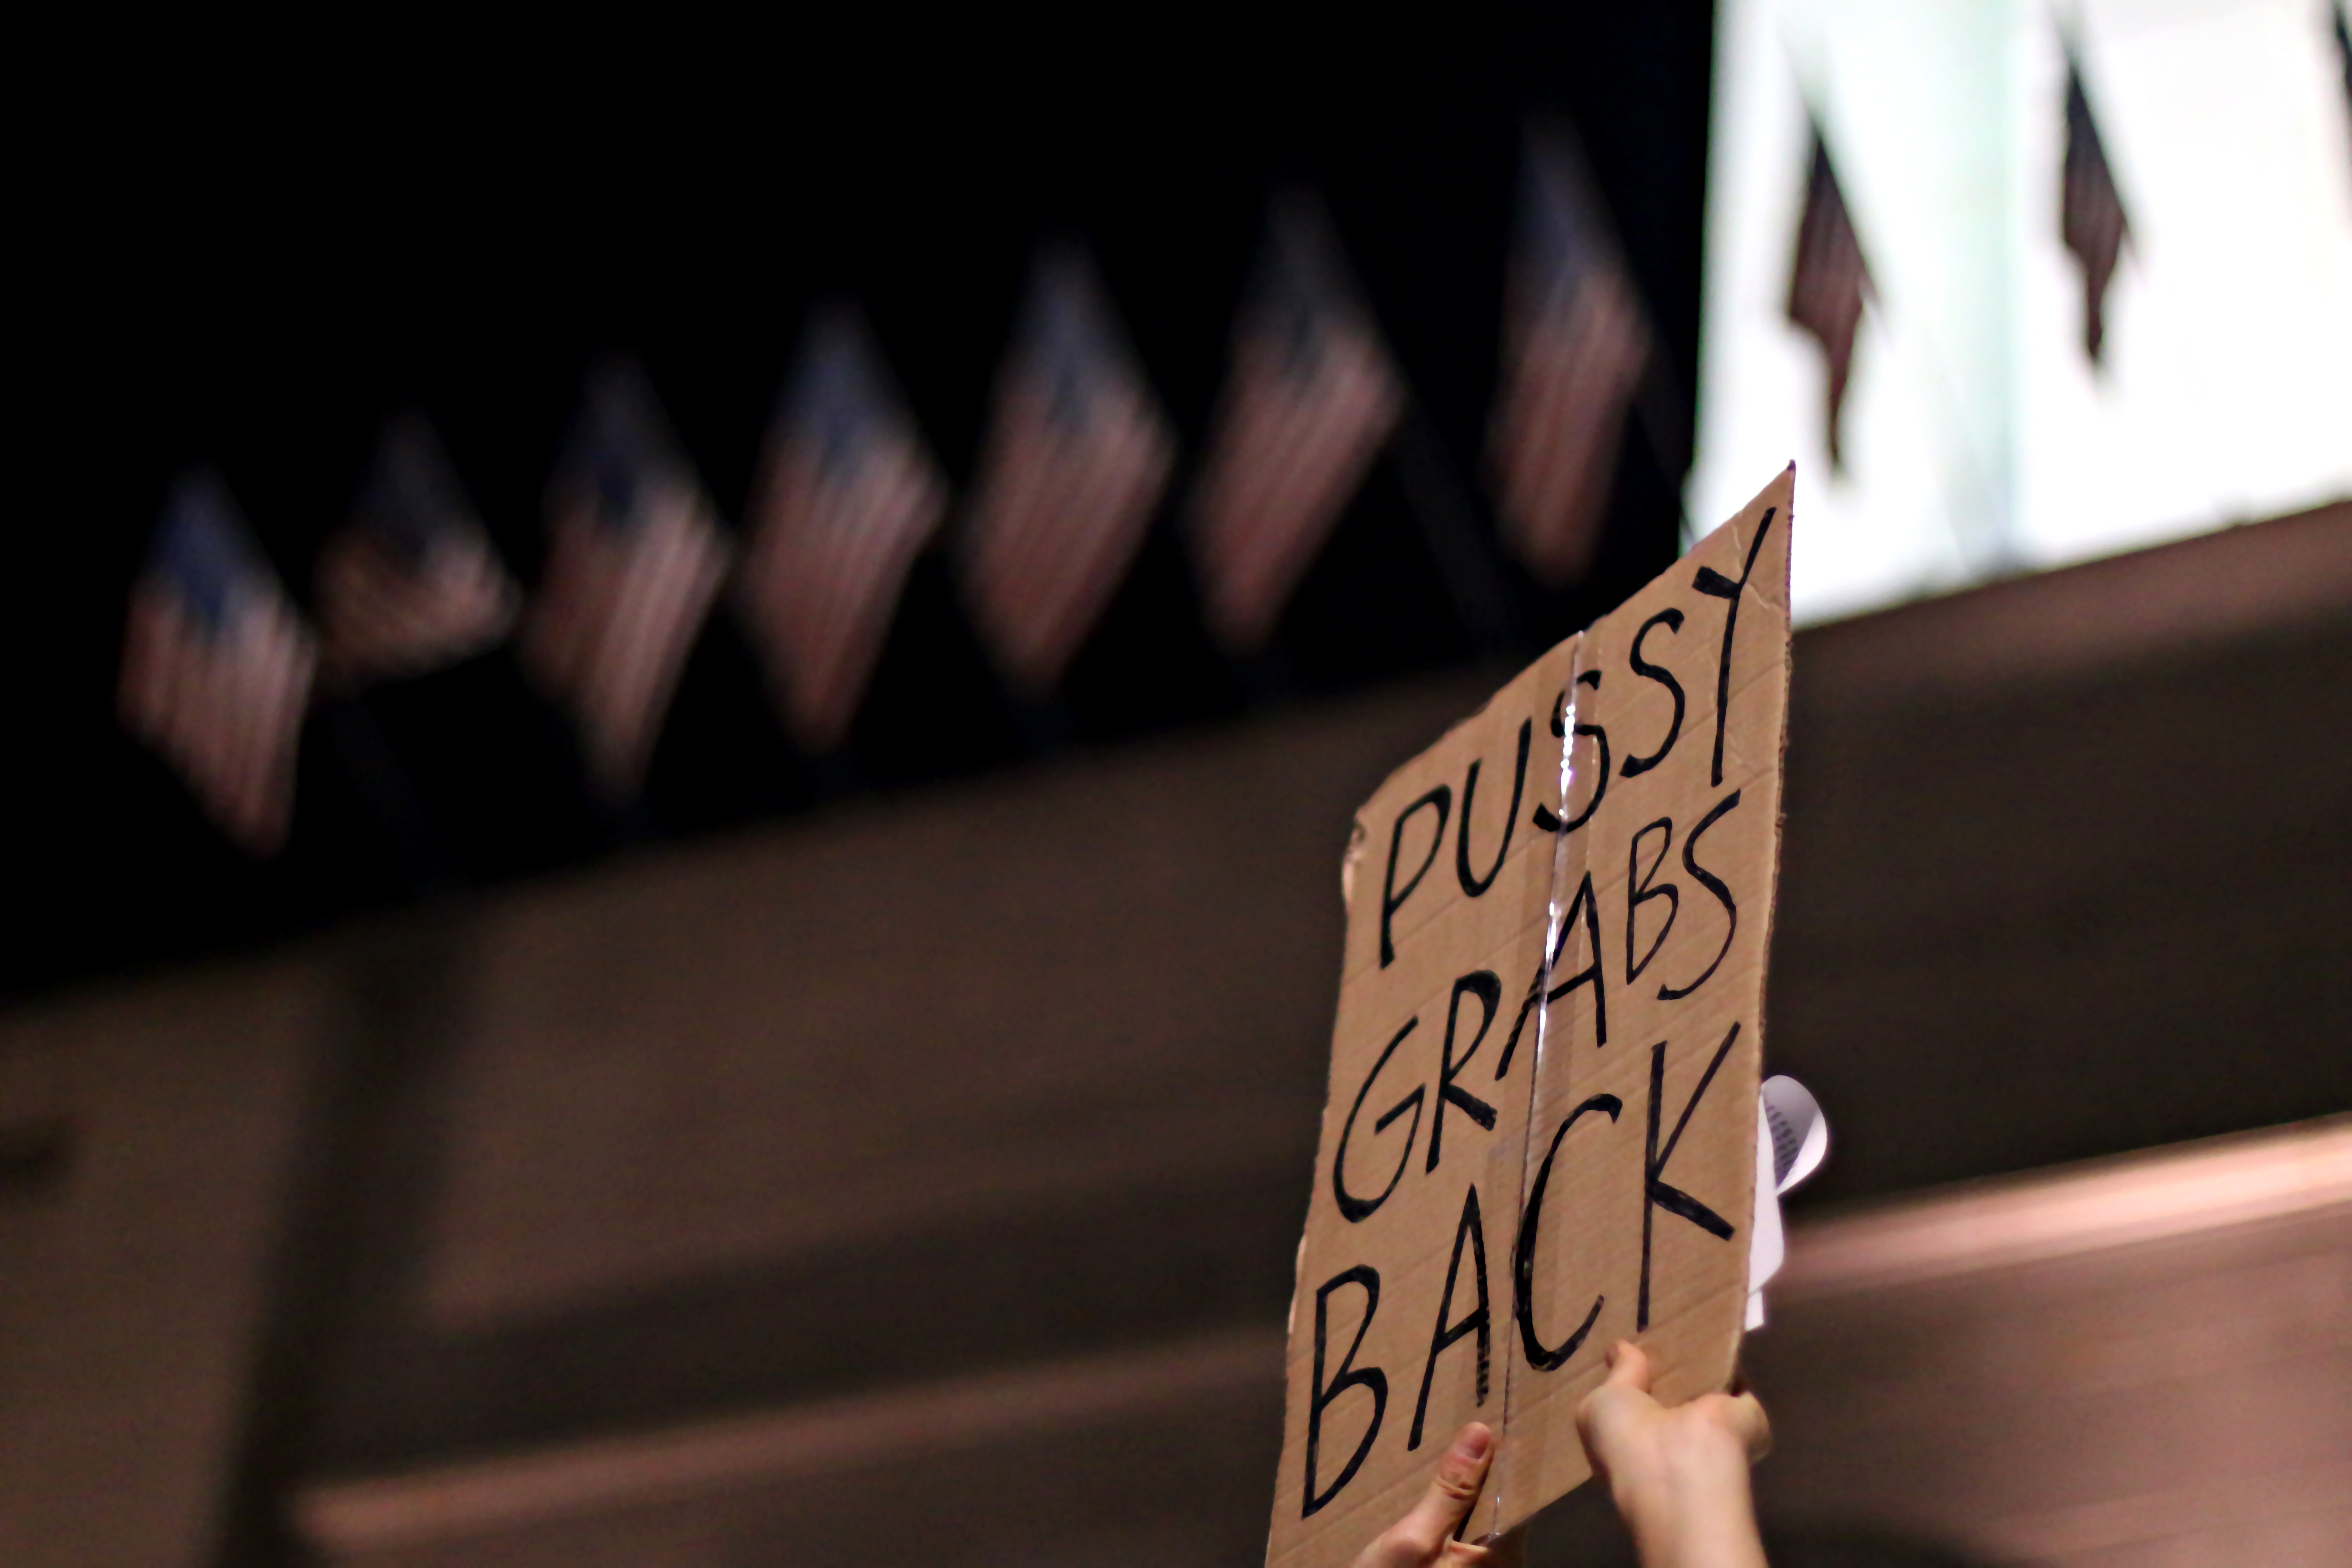 PUSSY
GRABS
BACK